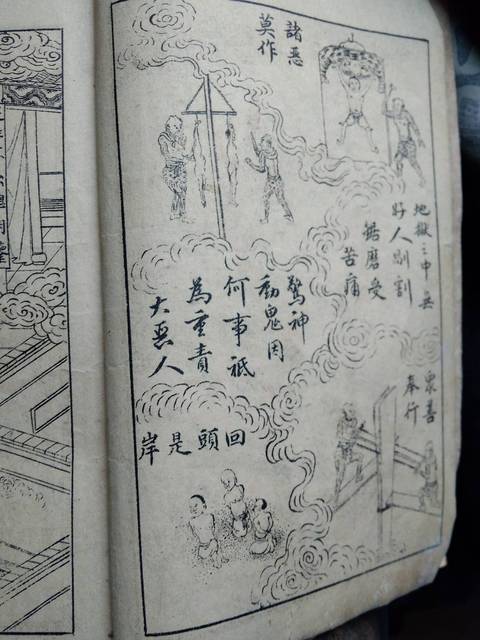 諸惡
莫作
地獄之中無
好人剮割
鋸磨受
苦痛
驚神
動鬼因
何事祗
為重責
大惡人
眾善
奉行
回頭是岸